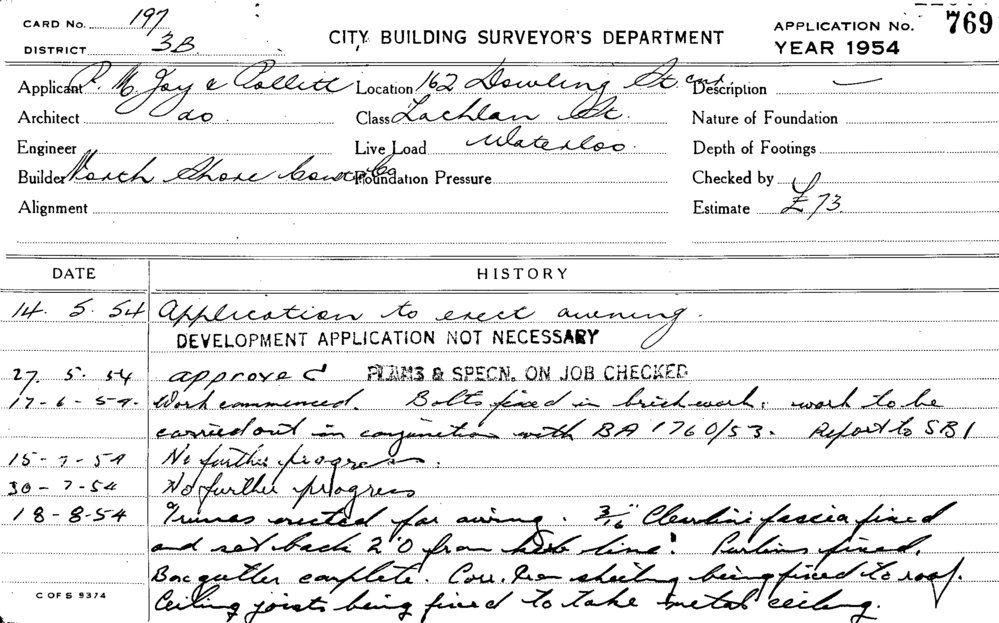 CARD No. 197
DISTRICT 3B
CITY BUILDING SURVEYOR'S DEPARTMENT
APPLICATION No. 769
YEAR 1954
Applicant P. M. Joy & Pollitt Location 162 Dowling St. cnr Description —
Architect do. Class Lachlan St. Nature of Foundation
Engineer Live Load Waterloo. Depth of Footings
Builder North Shore Constr. Co Foundation Pressure Checked by
Alignment Estimate £73.
DATE HISTORY
14. 5. 54 Application to erect awning.
DEVELOPMENT APPLICATION NOT NECESSARY
27. 5. 54 approved PLANS & SPECN. ON JOB CHECKED
17-6-54. Work commenced. Bolts fixed in brickwork. work to be
carried out in conjunction with BA 1760/53. Report to SB1
15-7-54 No further progress.
30-7-54 No further progress
18-8-54 erected for awning. 3/16" fascia fixed
and set back 2'0 from kerb line. Purlins fixed.
Box gutter complete. Corr. Iron sheeting being fixed to roof.
Ceiling joists being fixed to take metal ceiling.
C OF S 9374